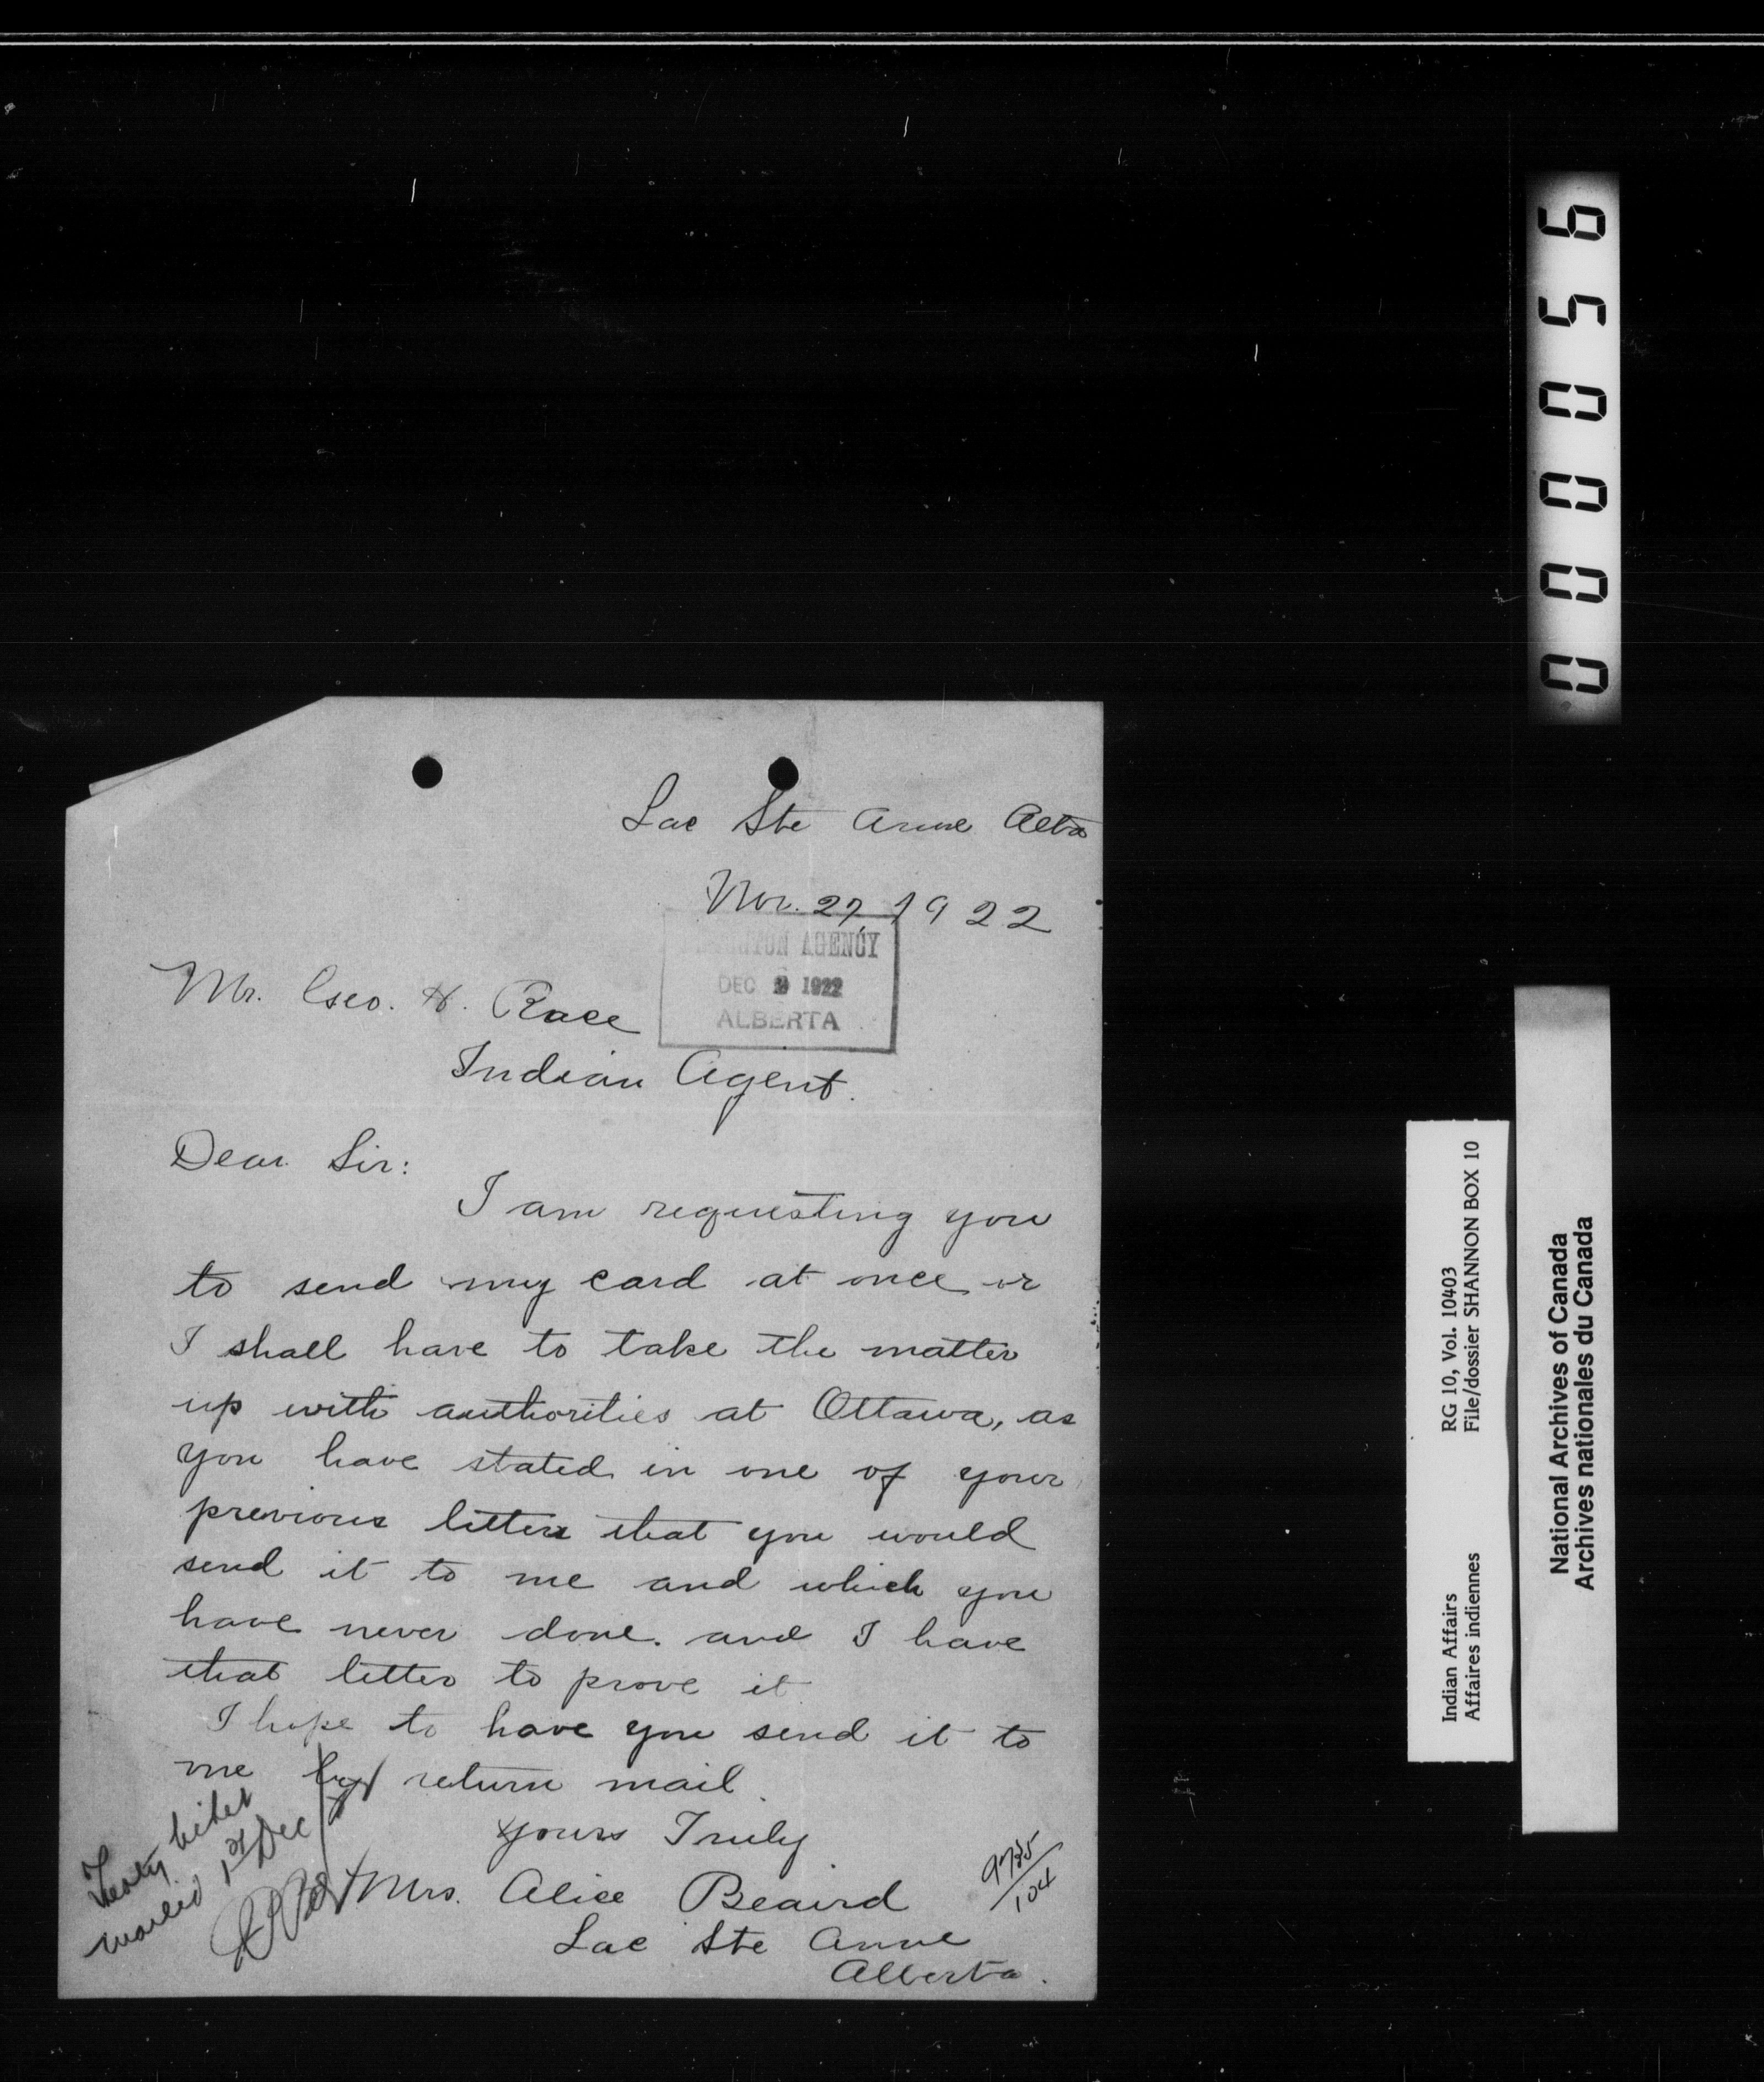 Lac Ste Anne Alta
Nov. 27 1922
AGENCY
DEC 1922
ALBERTA
Mr. Geo. H. Race
Indian Agent.
Dear Sir:
I am requesting you
to send my card at once or
I shall have to take the matter
up with authorities at Ottawa, as
you have stated in one of your
previous letters that you would
send it to me and which you
have never done. and I have
that letter to prove it
I hope to have you send it to
me by return mail.
Yours Truly
Mrs. Alice Beaird
Lac Ste Anne
Alberta.
Treaty ticket
mailed 1st Dec
104
000056
Indian Affairs RG 10, Vol. 10403
Affaires indiennes File/dossier SHANNON BOX 10
National Archives of Canada
Archives nationales du Canada